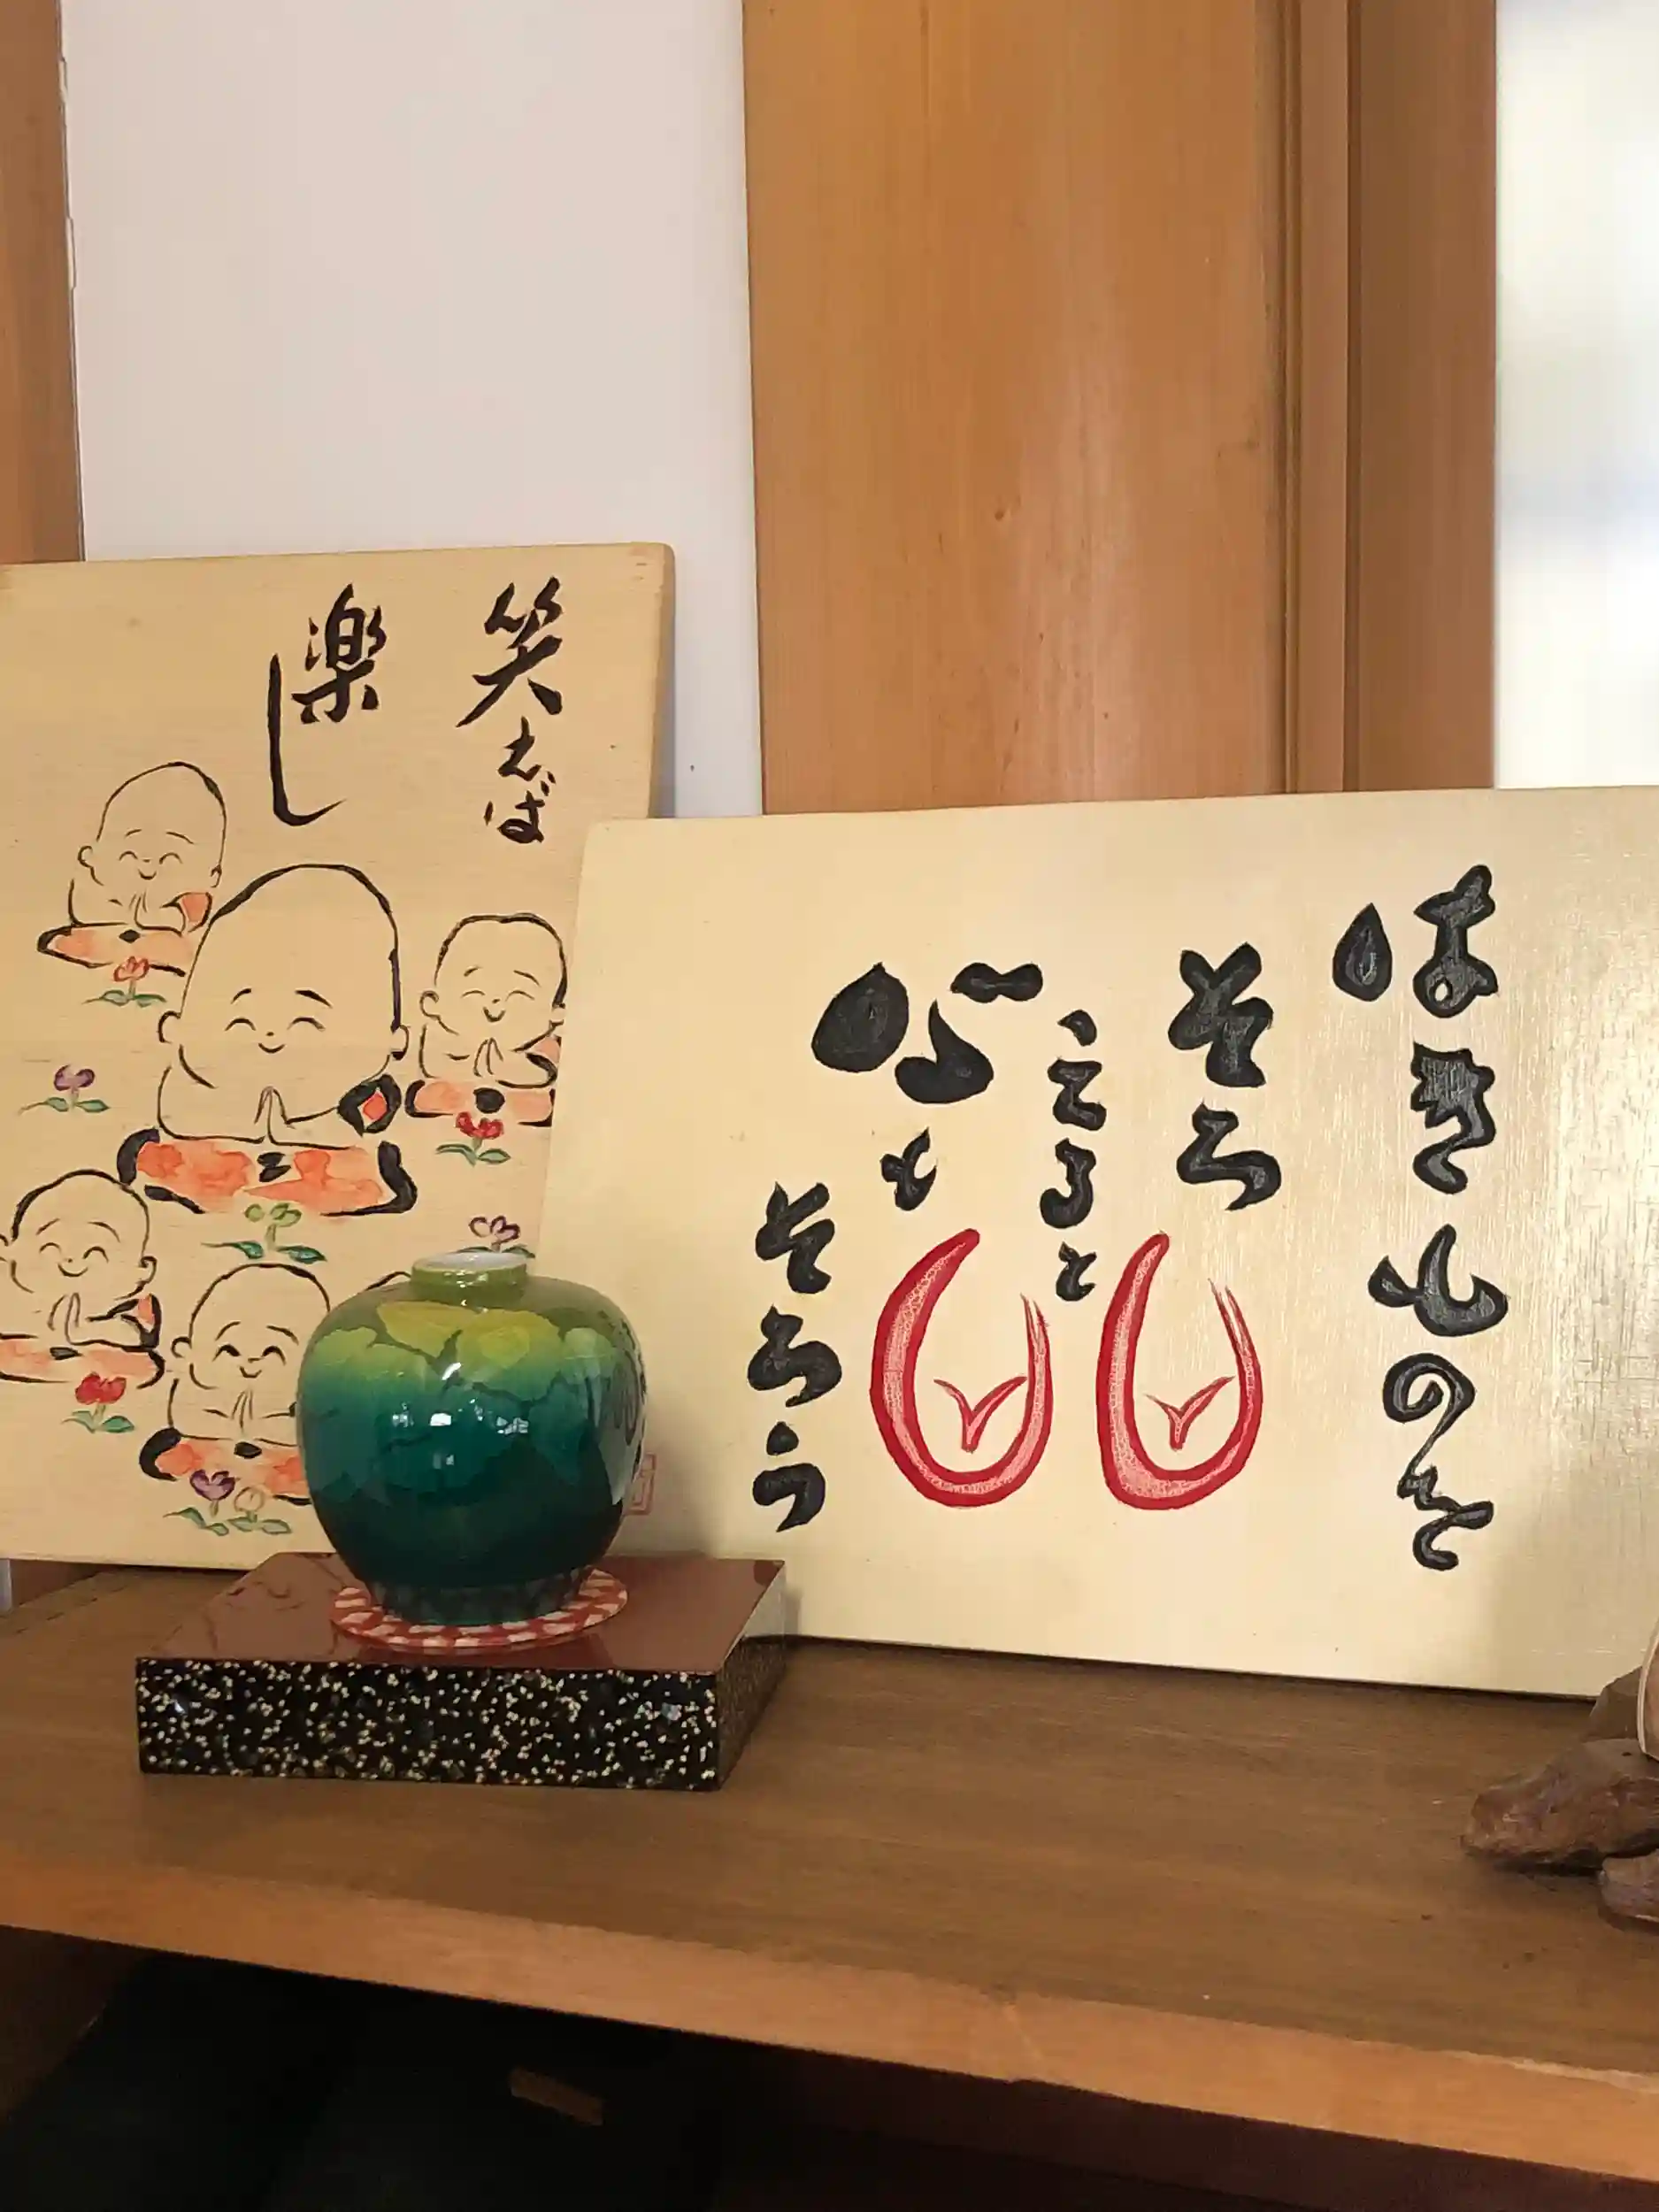 はきものを
そろ
えると
心も
そろう
笑えば
楽し